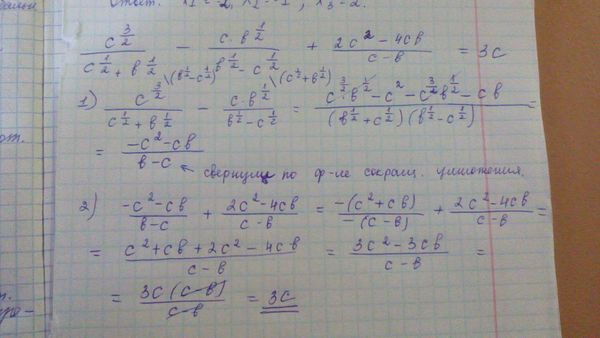 Ответ. x₁ = -2, x₂ = -1, x₃ = 2.
c^(3/2)/(c^(1/2) + b^(1/2)) - c·b^(1/2)/(b^(1/2) - c^(1/2)) + (2c² - 4cb)/(c - b) = 3c
1) c^(3/2)/(c^(1/2) + b^(1/2)) \(b^(1/2) - c^(1/2)) - c·b^(1/2)/(b^(1/2) - c^(1/2)) \(c^(1/2) + b^(1/2)) = (c^(3/2)·b^(1/2) - c² - c^(3/2)b^(1/2) - cb)/((b^(1/2) + c^(1/2))(b^(1/2) - c^(1/2))) =
= (-c² - cb)/(b - c)
свернули по ф-ле сокращ. умножения.
2) (-c² - cb)/(b - c) + (2c² - 4cb)/(c - b) = -(c² + cb)/-(c - b) + (2c² - 4cb)/(c - b) =
= (c² + cb + 2c² - 4cb)/(c - b) = (3c² - 3cb)/(c - b) =
= 3c(c - b)/(c - b) = 3c